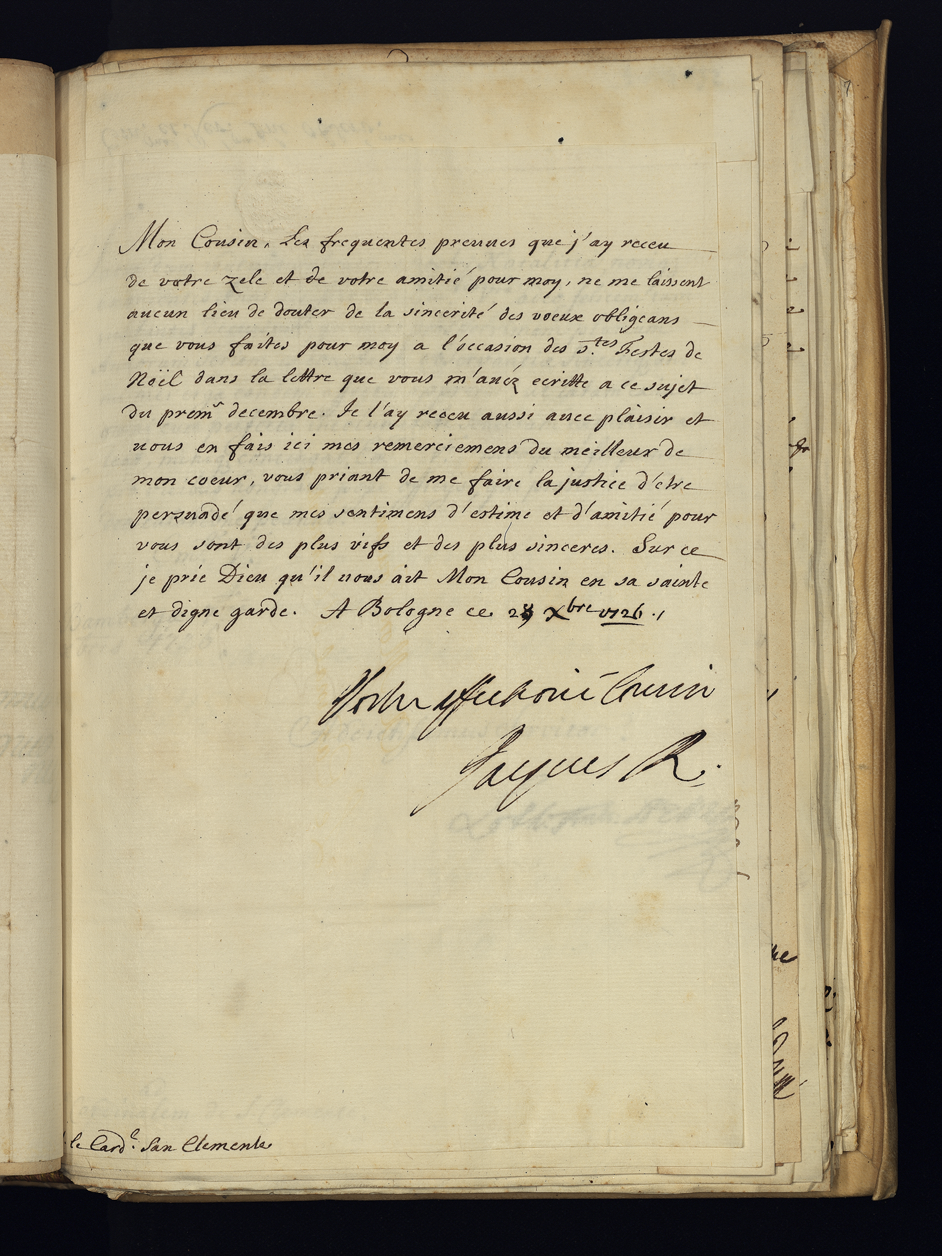 Mon Cousin, Les frequentes preuues que j'ay receu
de votre zele et de votre amitié pour moy, ne me laissent
aucun lieu de douter de la sincerité des voeux obligeans
que vous faites pour moy a l'occasion des s.tes Festes de
Noël dans la lettre que vous m'auéz ecritte a ce sujet
du premr decembre. Je l'ay receu aussi auec plaisir et
vous en fais ici mes remerciemens du meilleur de
mon coeur, vous priant de me faire la justice d'etre
persuadé que mes sentimens d'estime et d'amitié pour
vous sont des plus vifs et des plus sinceres. Sur ce
je prie Dieu qu'il vous ait Mon Cousin en sa sainte
et digne garde. A Bologne ce Xbre 1726.
Vostre affectionné Cousin
Jacques R.
le Card.l San Clemente